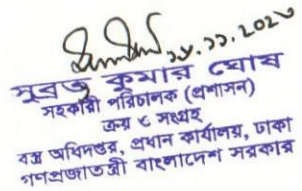 ১৮.১১.২০২০
সুব্রত কুমার ঘোষ
সহকারী পরিচালক (প্রশাসন)
ক্রয় ও সংগ্রহ
বস্ত্র অধিদপ্তর, প্রধান কার্যালয়, ঢাকা
গণপ্রজাতন্ত্রী বাংলাদেশ সরকার